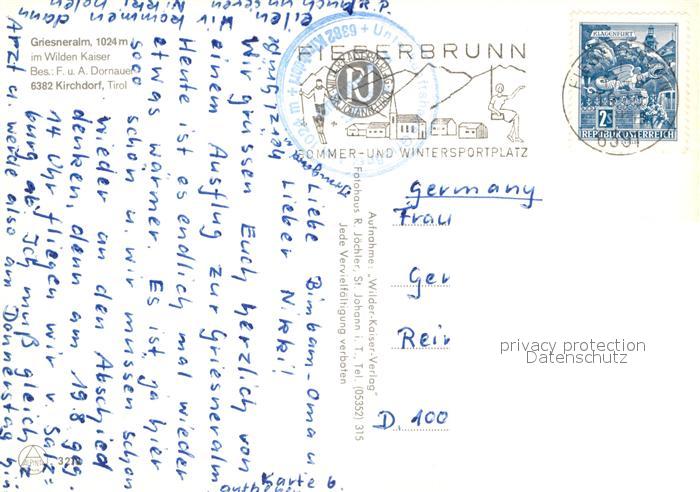 Griesneralm, 1024 m
im Wilden Kaiser
Bes.: F. u. A. Dornauer
6382 Kirchdorf, Tirol
FIEBERBRUNN
SOMMER- UND WINTERSPORTPLATZ
KLAGENFURT
2S
REPUBLIK ÖSTERREICH
Liebe Bimbam-Oma u.
Lieber Nikki!
Wir grüssen Euch herzlich von
einem Ausflug zur Griesneralm
Heute ist es endlich mal wieder
etwas wärmer. Es ist ja hier
sooo schön u. wir müssen schon
wieder an den Abschied
denken, denn am 19.8. geg.
14 Uhr fliegen wir v. Salz-
burg ab. Ich muß gleich z.
Arzt u. werde also am Donnerstag
Aufnahme: „Wilder-Kaiser-Verlag"
Fotohaus R. Jöchler, St. Johann i. T., Tel. (05352) 315
Jede Vervielfältigung verboten
Germany
Frau
Ger
Rei
D. 100
privacy protection
Datenschutz